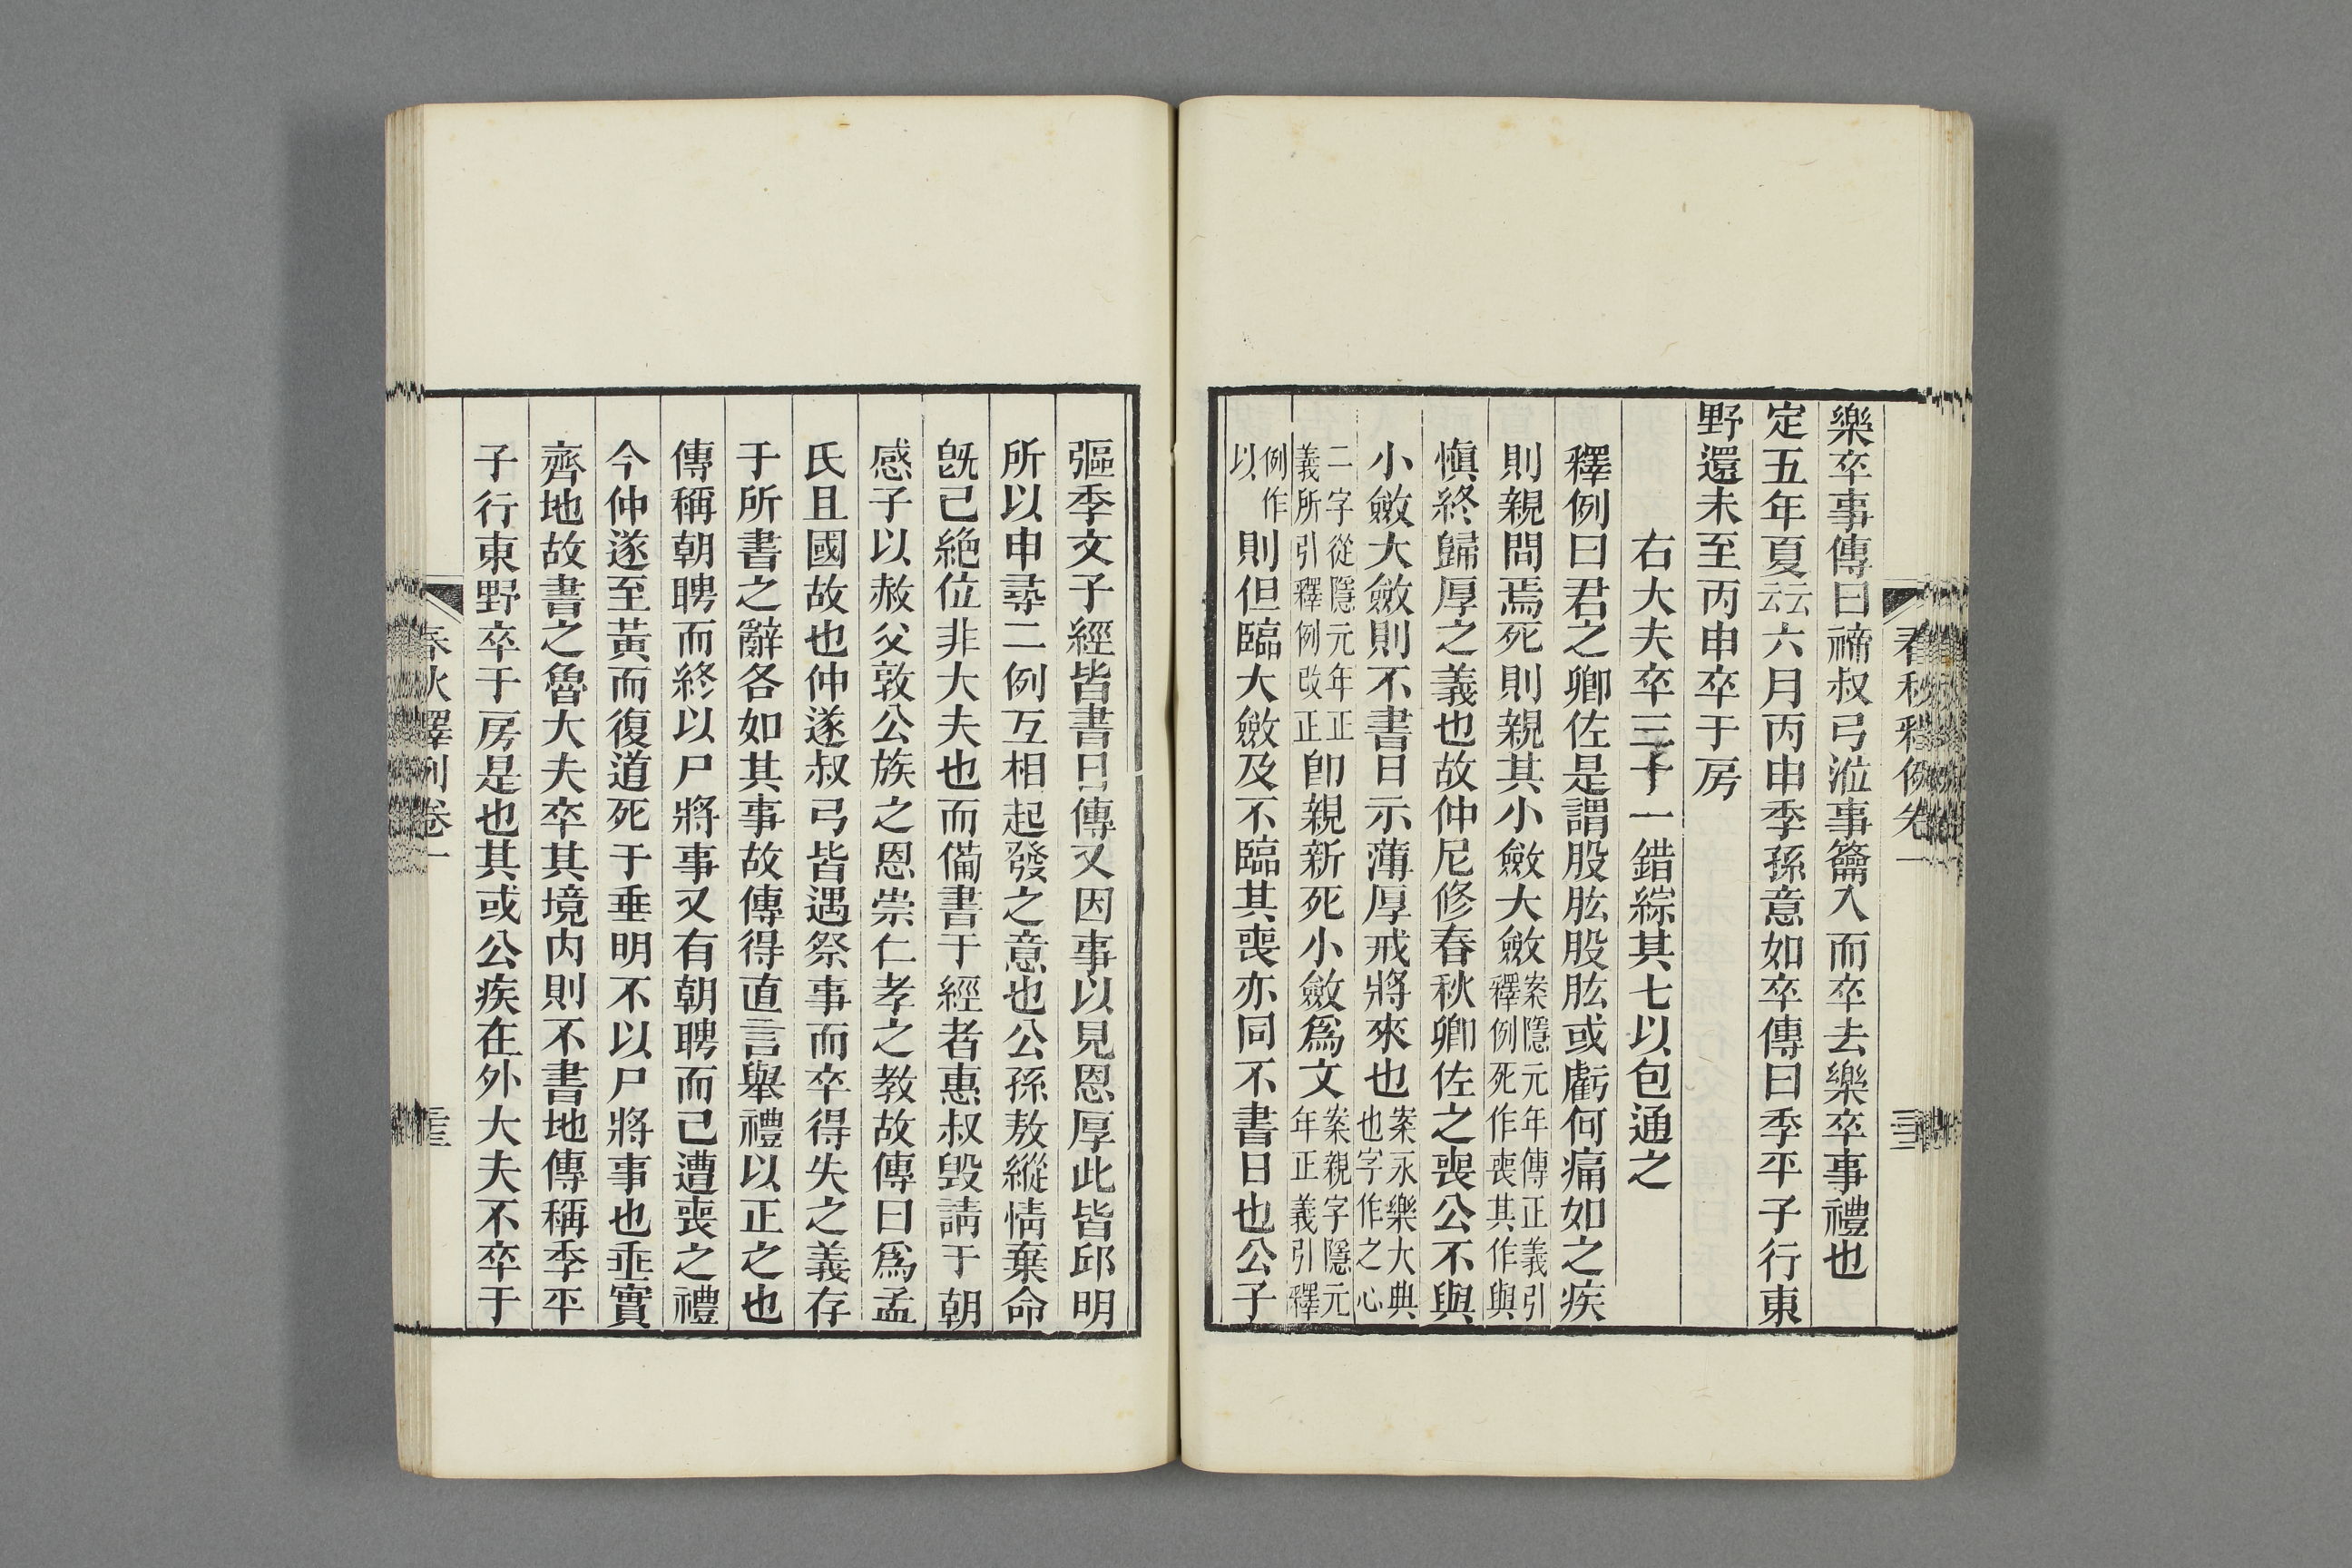 樂卒事傳曰禘叔弓涖事籥入而卒去樂卒事禮也
定五年夏云云六月丙申季孫意如卒傳曰季平子行東
野還未至丙申卒于房
右大夫卒三十一錯綜其七以包通之
釋例曰君之卿佐是謂股肱股肱或虧何痛如之疾
則親問焉死則親其小斂大斂案隱元年傳正義引釋例死作喪其作與
愼終歸厚之義也故仲尼修春秋卿佐之喪公不與
小斂大斂則不書日示薄厚戒將來也案永樂大典也字作之心
二字從隱元年正義所引釋例改正卽親新死小斂爲文案親字隱元年正義引釋
例作以則但臨大斂及不臨其喪亦同不書日也公子
彄季文子經皆書日傳又因事以見恩厚此皆邱明
所以申尋二例互相起發之意也公孫敖縱情棄命
旣已絶位非大夫也而備書于經者惠叔毀請于朝
感子以赦父敦公族之恩崇仁孝之教故傳曰爲孟
氏且國故也仲遂叔弓皆遇祭事而卒得失之義存
于所書之辭各如其事故傳得直言舉禮以正之也
傳稱朝聘而終以尸將事又有朝聘而己遭喪之禮
今仲遂至黃而復道死于垂明不以尸將事也垂實
齊地故書之魯大夫卒其境內則不書地傳稱季平
子行東野卒于房是也其或公疾在外大夫不卒于
春秋釋例卷一